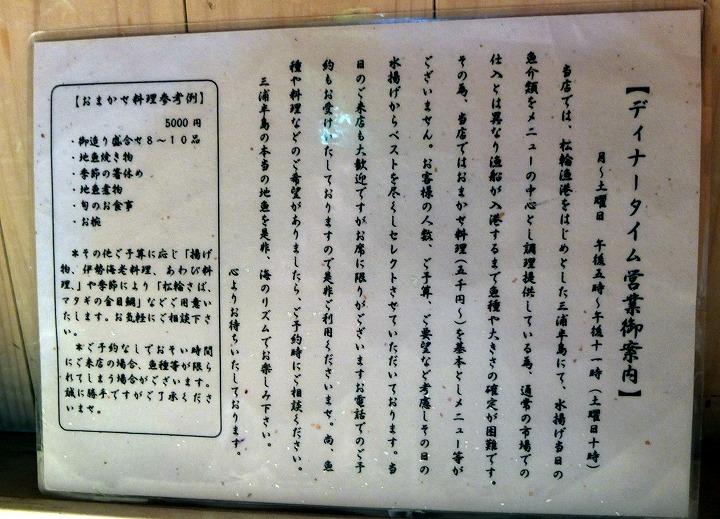 【ディナータイム営業御案内】
月〜土曜日 午後五時〜午後十一時（土曜日十時）
当店では、松輪漁港をはじめとした三浦半島にて、水揚げ当日の
魚介類をメニューの中心とし調理提供している為、通常の市場での
仕入とは異なり漁船が入港するまで魚種や大きさの確定が困難です。
その為、当店ではおまかせ料理（五千円〜）を基本としメニュー等が
ございません。お客様の人数、ご予算、ご要望など考慮しその日の
水揚げからベストを尽くしセレクトさせていただいております。当
日のご来店も大歓迎ですがお席に限りがございますお電話でのご予
約もお受けいたしておりますので是非ご利用くださいませ。尚、魚
種や料理などのご希望がありましたら、ご予約時にご相談ください。
三浦半島の本当の地魚を是非、海のリズムでお楽しみ下さい。
心よりお待ちいたしております。
【おまかせ料理参考例】
5000円
・御造り盛合せ８〜１０品
・地魚焼き物
・季節の箸休め
・地魚煮物
・旬のお食事
・お椀
＊その他ご予算に応じ「揚げ
物、伊勢海老料理、あわび料
理、」や季節により「松輪さば、
マタギの金目鯛」などご用意い
たします。お気軽にご相談下さ
い。
＊ご予約なしでおそい時間
にご来店の場合、魚種等が限ら
れてしまう場合がございます。
誠に勝手ですがご了承くださ
いませ。